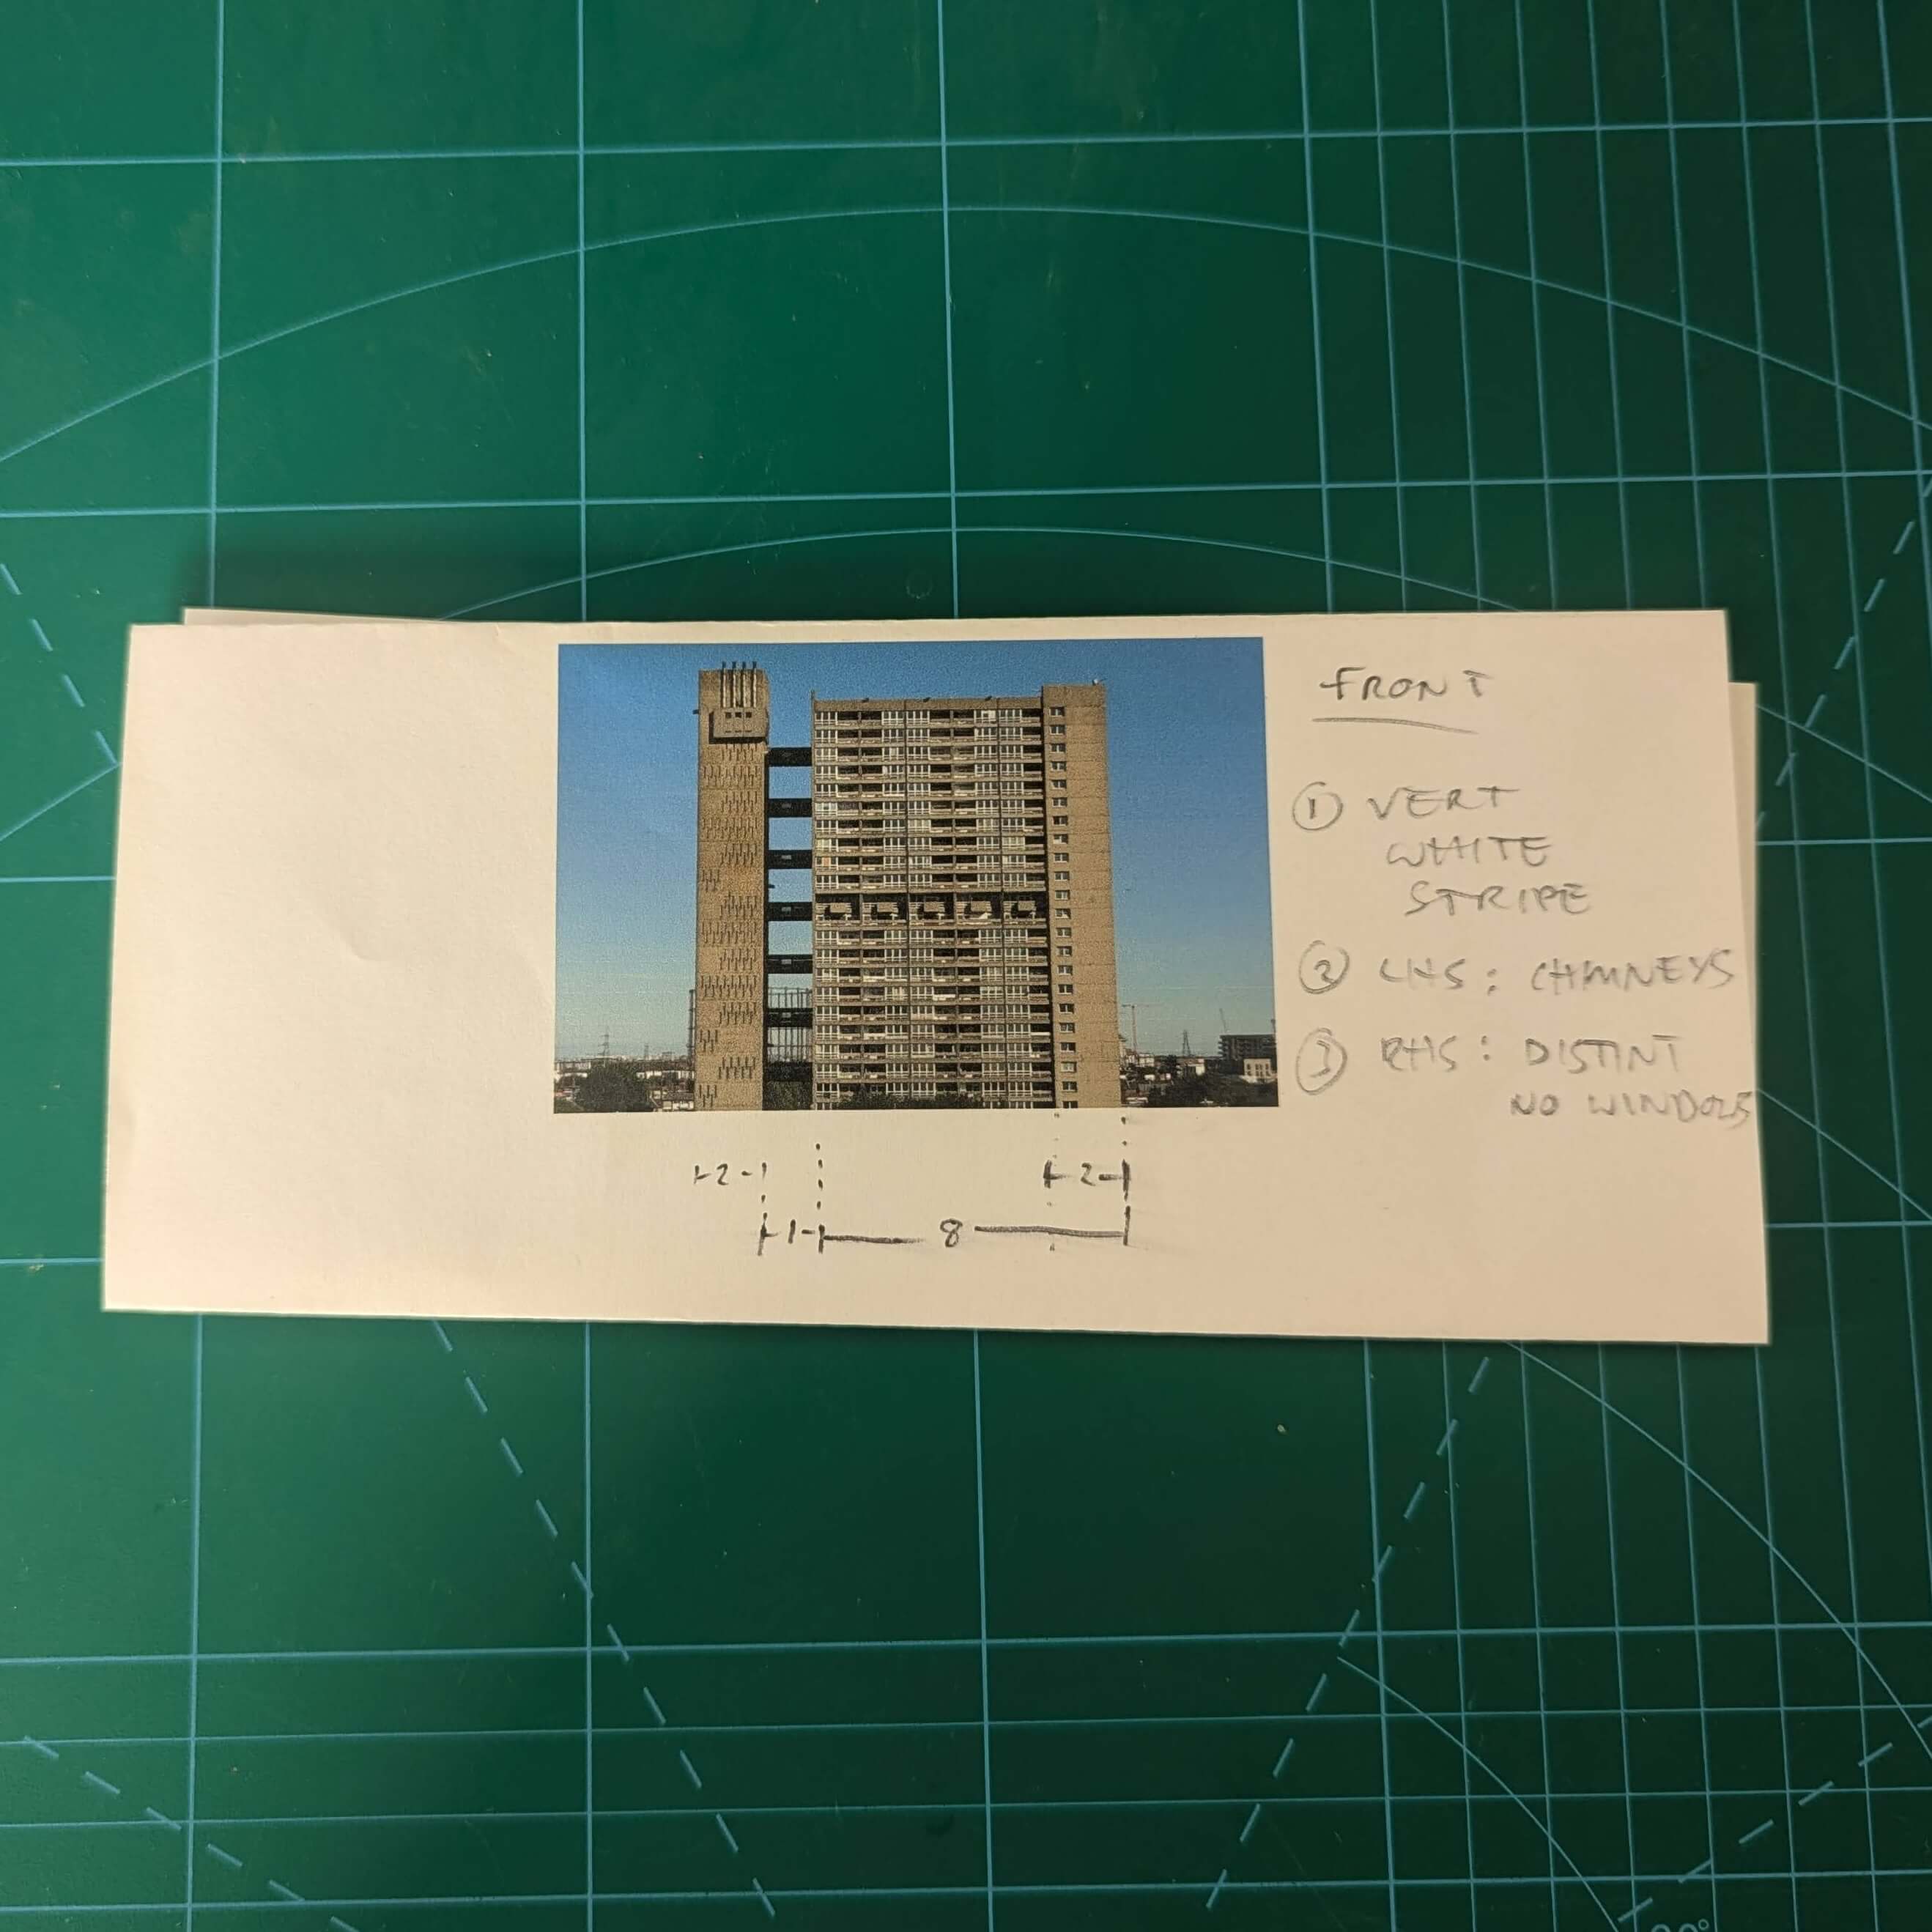 FRONT
① VERT
WHITE
STRIPE
② LHS: CHIMNEYS
③ RHS: DISTINT
NO WINDOWS
2
2
1
8